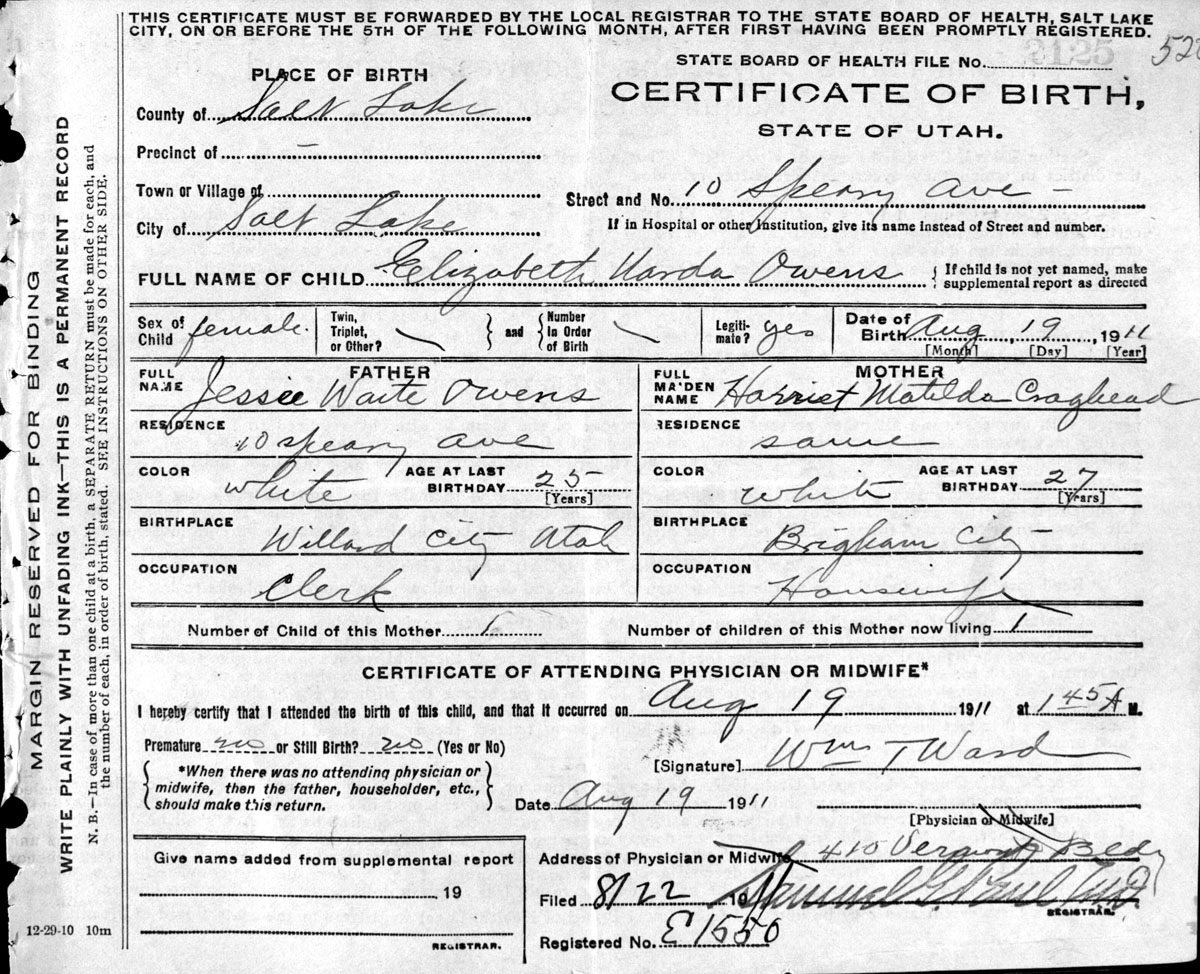 THIS CERTIFICATE MUST BE FORWARDED BY THE LOCAL REGISTRAR TO THE STATE BOARD OF HEALTH, SALT LAKE
CITY, ON OR BEFORE THE 5TH OF THE FOLLOWING MONTH, AFTER FIRST HAVING BEEN PROMPTLY REGISTERED.
STATE BOARD OF HEALTH FILE No.
PLACE OF BIRTH
CERTIFICATE OF BIRTH,
STATE OF UTAH.
County of Salt Lake
Precinct of -
Town or Village of
Street and No. 10 Speary Ave -
City of Salt Lake
If in Hospital or other Institution, give its name instead of Street and number.
FULL NAME OF CHILD Elizabeth Varda Owens { If child is not yet named, make supplemental report as directed
Sex of Child female. Twin, Triplet, or Other? and Number In Order of Birth Legitimate? yes Date of Birth Aug, 19, 1911
[Month] [Day] [Year]
FATHER
FULL NAME Jessie Waite Owens
RESIDENCE 10 Speary ave
COLOR white AGE AT LAST BIRTHDAY 25 [Years]
BIRTHPLACE Willard City Utah
OCCUPATION Clerk
MOTHER
FULL MAIDEN NAME Harriet Matilda Craghead
RESIDENCE same
COLOR white AGE AT LAST BIRTHDAY 27 [Years]
BIRTHPLACE Brigham City
OCCUPATION Housewife
Number of Child of this Mother 1 Number of children of this Mother now living 1
CERTIFICATE OF ATTENDING PHYSICIAN OR MIDWIFE*
I hereby certify that I attended the birth of this child, and that it occurred on Aug 19 1911 at 1 45 A M.
Premature no or Still Birth? no (Yes or No)
[Signature] Wm T Ward
{ *When there was no attending physician or midwife, then the father, householder, etc., should make this return. }
Date Aug 19 1911
[Physician or Midwife]
Give name added from supplemental report
19
REGISTRAR.
Address of Physician or Midwife 410 Bldg
Filed 8/22 19
REGISTRAR.
Registered No. E1550
12-29-10 10m
MARGIN RESERVED FOR BINDING
WRITE PLAINLY WITH UNFADING INK—THIS IS A PERMANENT RECORD
N. B.—In case of more than one child at a birth, a SEPARATE RETURN must be made for each, and
the number of each, in order of birth, stated. SEE INSTRUCTIONS ON OTHER SIDE.